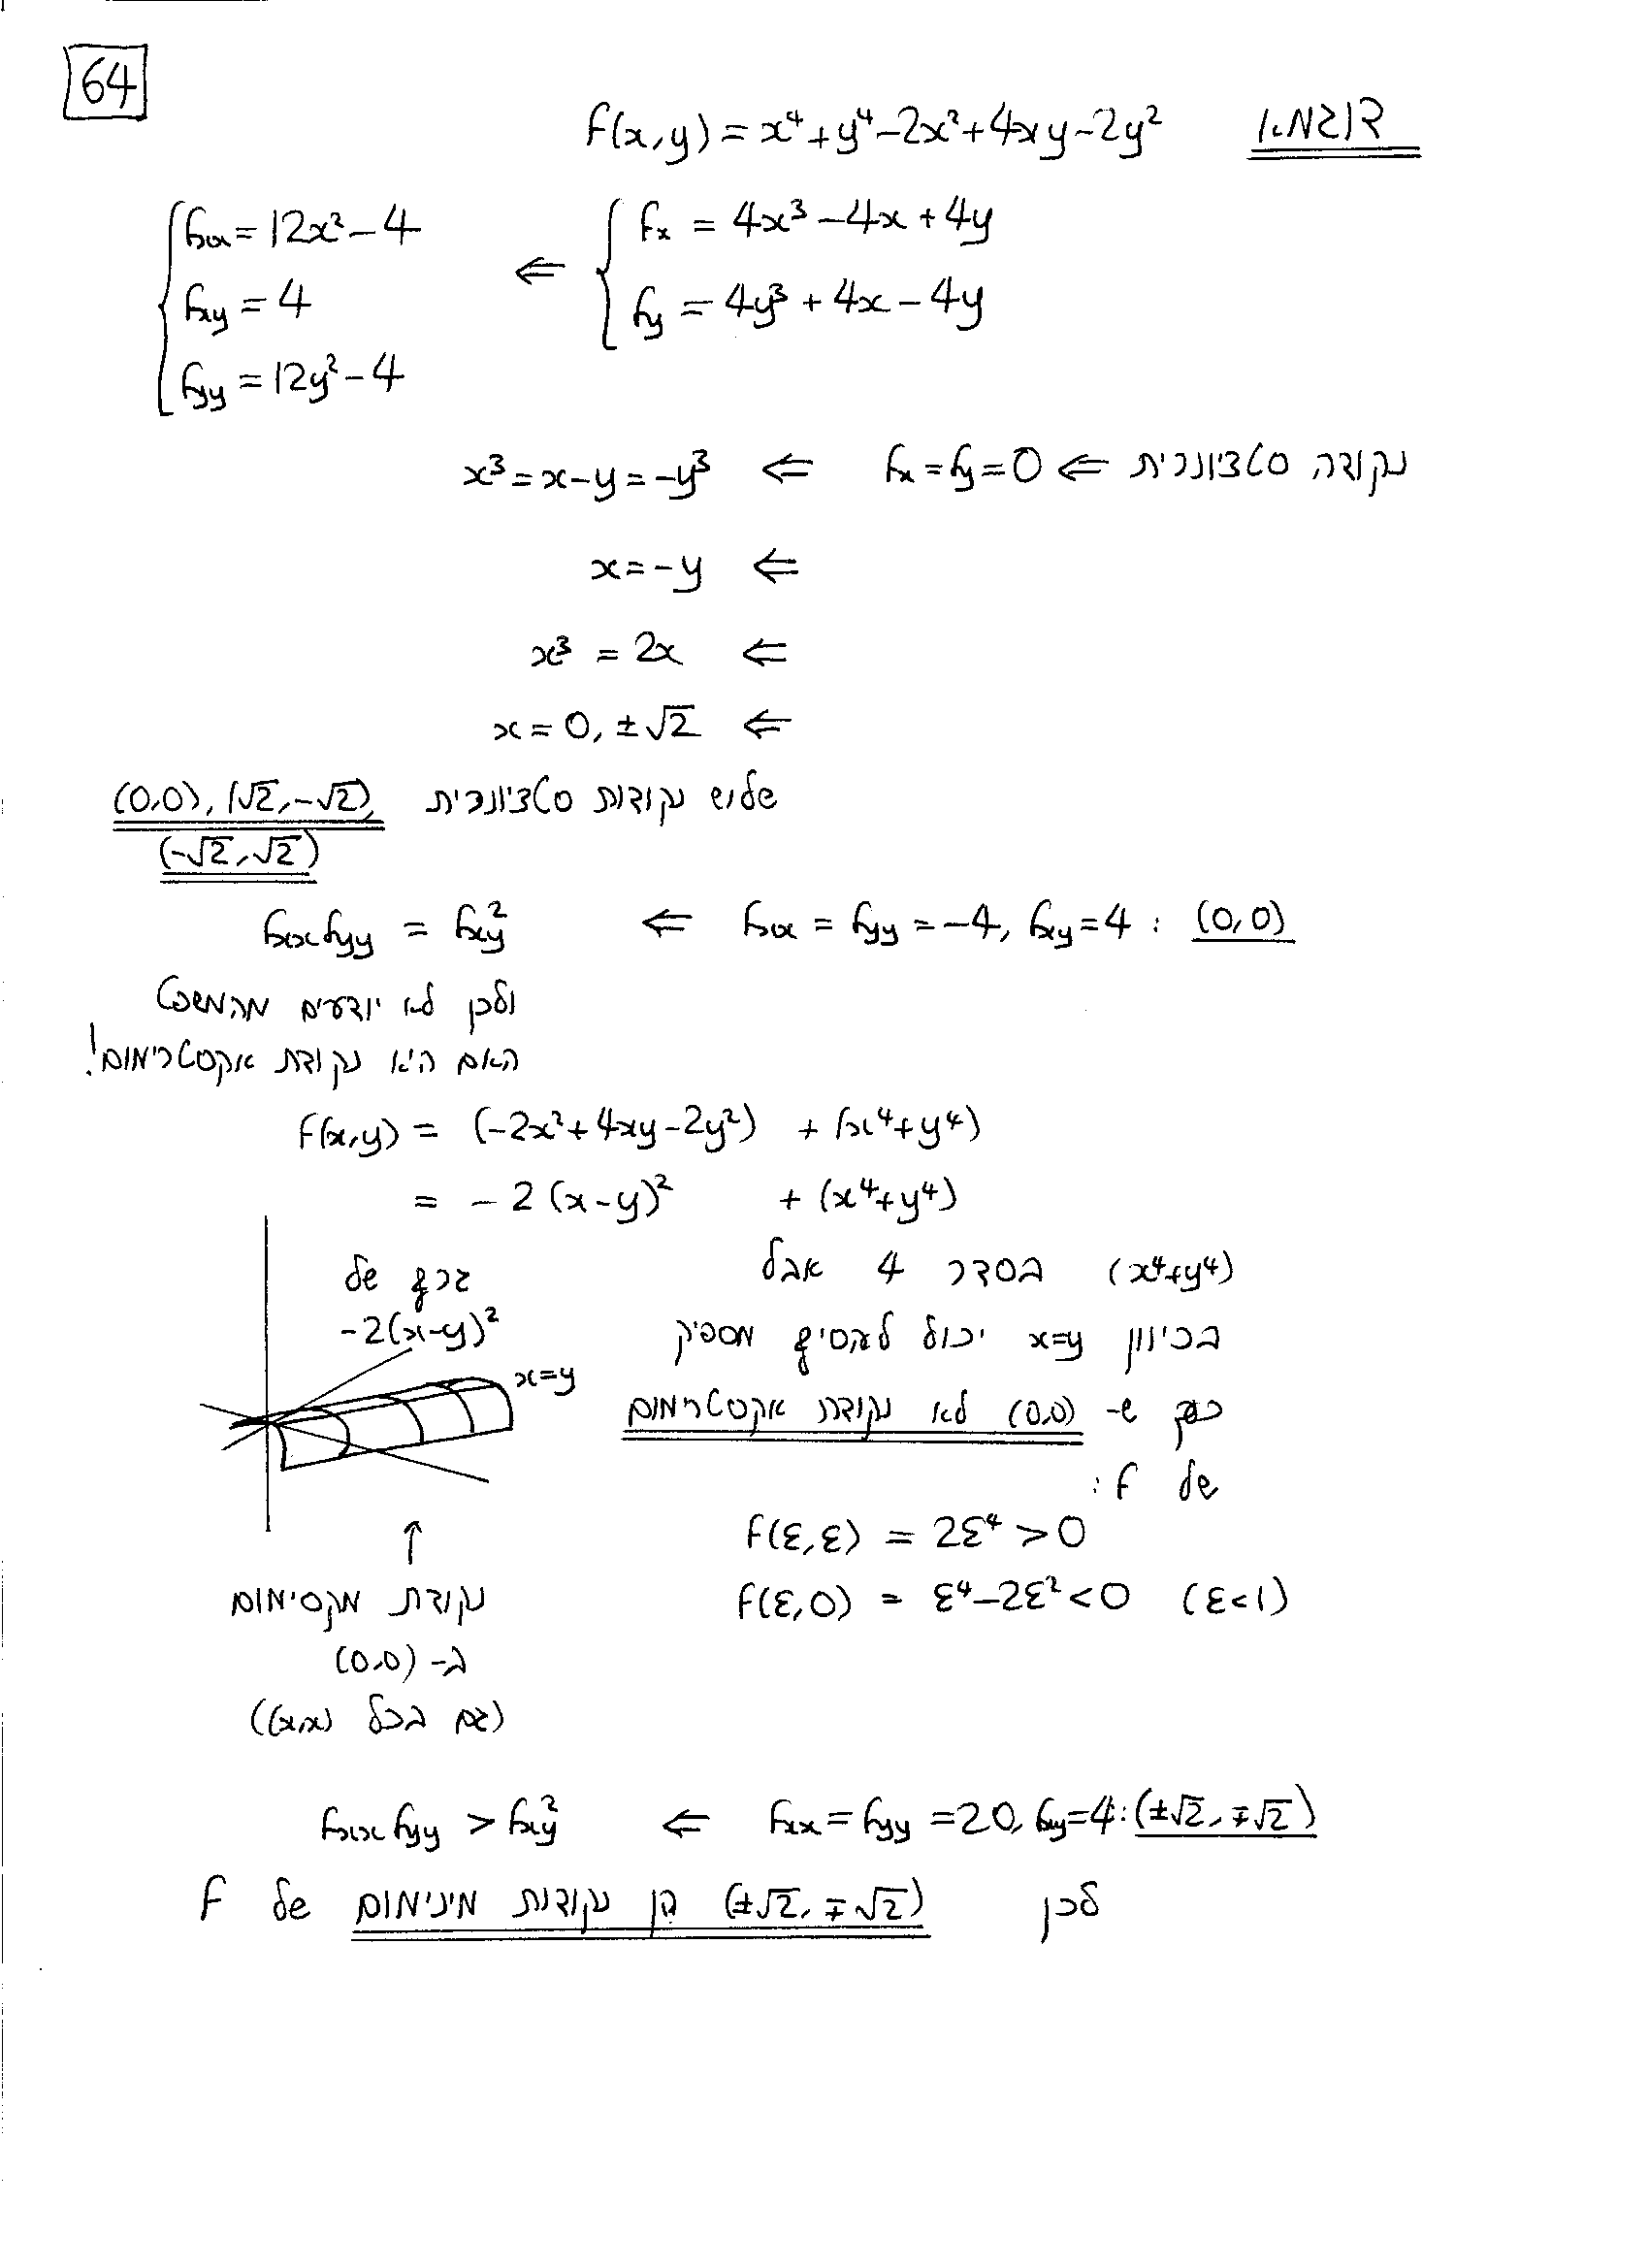 64
דוגמא f(x,y) = x⁴+y⁴-2x²+4xy-2y²
{ fₓ = 4x³-4x+4y
f_y = 4y³+4x-4y
⇐ { fₓₓ = 12x²-4
fₓy = 4
f_yy = 12y²-4
נקודה סטציונרית ⇐ fₓ = f_y = 0 ⇐ x³ = x-y = -y³
⇐ x = -y
⇐ x³ = 2x
⇐ x = 0, ±√2
שלוש נקודות סטציונרית (0,0), (√2,-√2),
(-√2,√2)
(0,0) : fₓₓ = f_yy = -4, fₓy = 4 ⇐ fₓₓf_yy = fₓy²
ולכן לא יודעים מהמשפט
האם היא נקודת אקסטרימום!
f(x,y) = (-2x²+4xy-2y²) + (x⁴+y⁴)
= -2(x-y)² + (x⁴+y⁴)
(x⁴+y⁴) בסדר 4 אבל
בכיוון x=y יכול להוסיף מספיק
כך ש- (0,0) לא נקודת אקסטרימום
של f:
f(ε,ε) = 2ε⁴ > 0
f(ε,0) = ε⁴-2ε² < 0 (ε<1)
גרף של
-2(x-y)²
x=y
↑
נקודת מקסימום
ב- (0,0)
(גם בכל (x,x))
(±√2,∓√2) : fₓₓ = f_yy = 20, fₓy = 4 ⇐ fₓₓf_yy > fₓy²
לכן (±√2,∓√2) הן נקודות מינימום של f